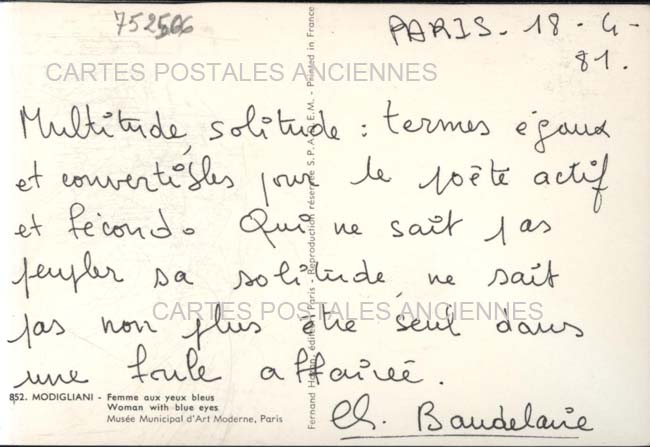 752506
PARIS. 18-4-
81.
CARTES POSTALES ANCIENNES
Multitude, solitude : termes égaux
et convertibles pour le poète actif
et fécond. Qui ne sait pas
peupler sa solitude, ne sait
CARTES POSTALES ANCIENNES
pas non plus être seul dans
une foule affairée.
Ch. Baudelaire
852. MODIGLIANI - Femme aux yeux bleus
Woman with blue eyes
Musée Municipal d'Art Moderne, Paris
Fernand Hazan, éditeur, Paris - Reproduction réservée S.P.A.D.E.M. - Printed in France